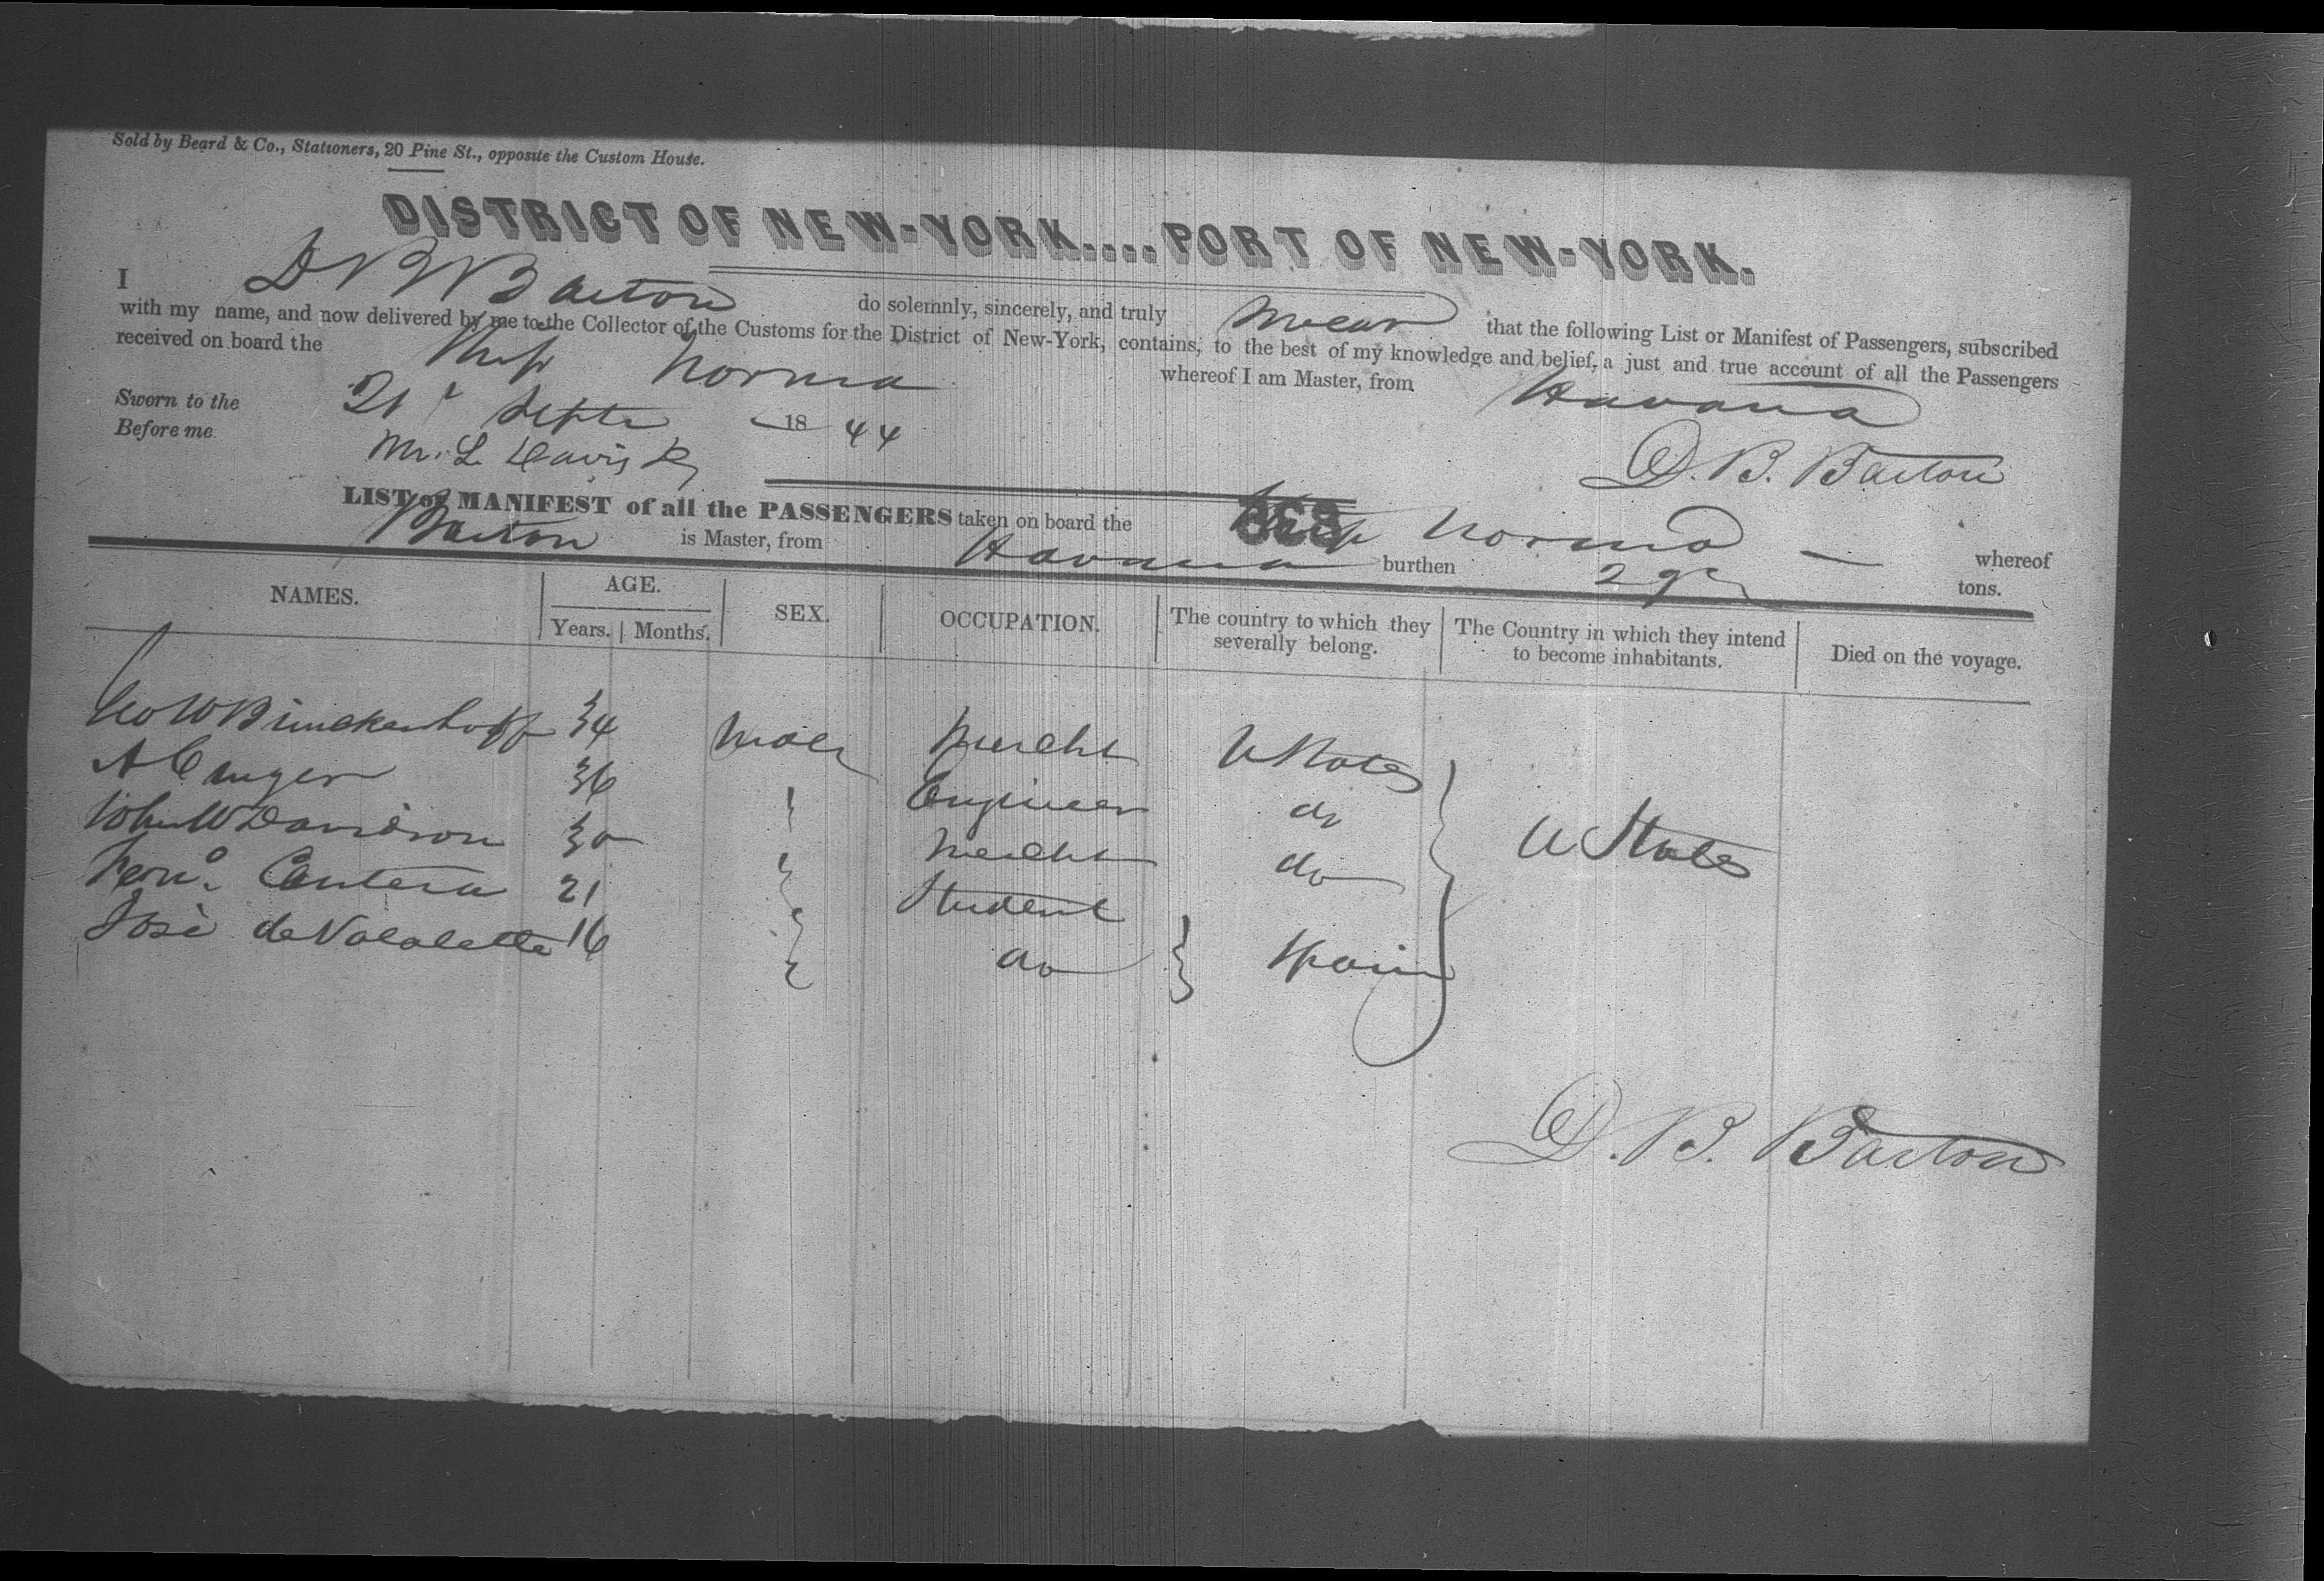 Sold by Beard & Co., Stationers, 20 Pine St., opposite the Custom House.
DISTRICT OF NEW-YORK....PORT OF NEW-YORK.
I D B Barton do solemnly, sincerely, and truly swear that the following List or Manifest of Passengers, subscribed
with my name, and now delivered by me to the Collector of the Customs for the District of New-York, contains, to the best of my knowledge and belief, a just and true account of all the Passengers
received on board the Ship Norma whereof I am Master, from Havana
Sworn to the 21 Septr 1844
Before me M. L. Davis
D. B. Barton
LIST or MANIFEST of all the PASSENGERS taken on board the Ship Norma whereof
868
Barton is Master, from Havana burthen tons.
NAMES. AGE. SEX. OCCUPATION. The country to which they severally belong. The Country in which they intend to become inhabitants. Died on the voyage.
Years. Months.
Geo W Brinckerhoff 34 Male Mercht U States
A C 36 Engineer do
John W Davidson 30 Mercht do U States
Fern.o Cantera 21 Student
José de 16 do Spain
D. B. Barton